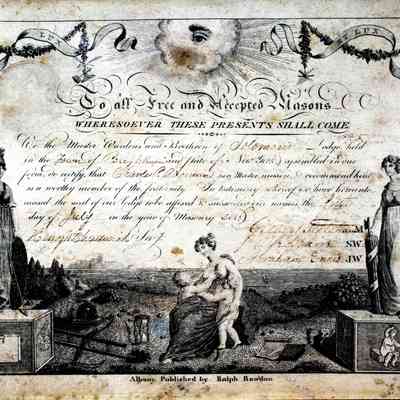 LUX
LUX
To all Free and Accepted Masons
WHERESOEVER THESE PRESENTS SHALL COME
We the Master Wardens and Brethren of Solomons Lodge held
in the Town of and State of New York assembled in due
form, do certify, that is a Master Mason & recommend him
as a worthy member of the fraternity. In testimony whereof we have hereunto
caused the seal of our Lodge to be affixed & subscribed our names the
day of July in the year of Masonry
M
Secy SW.
Abraham JW
Albany Published by Ralph Rawdon